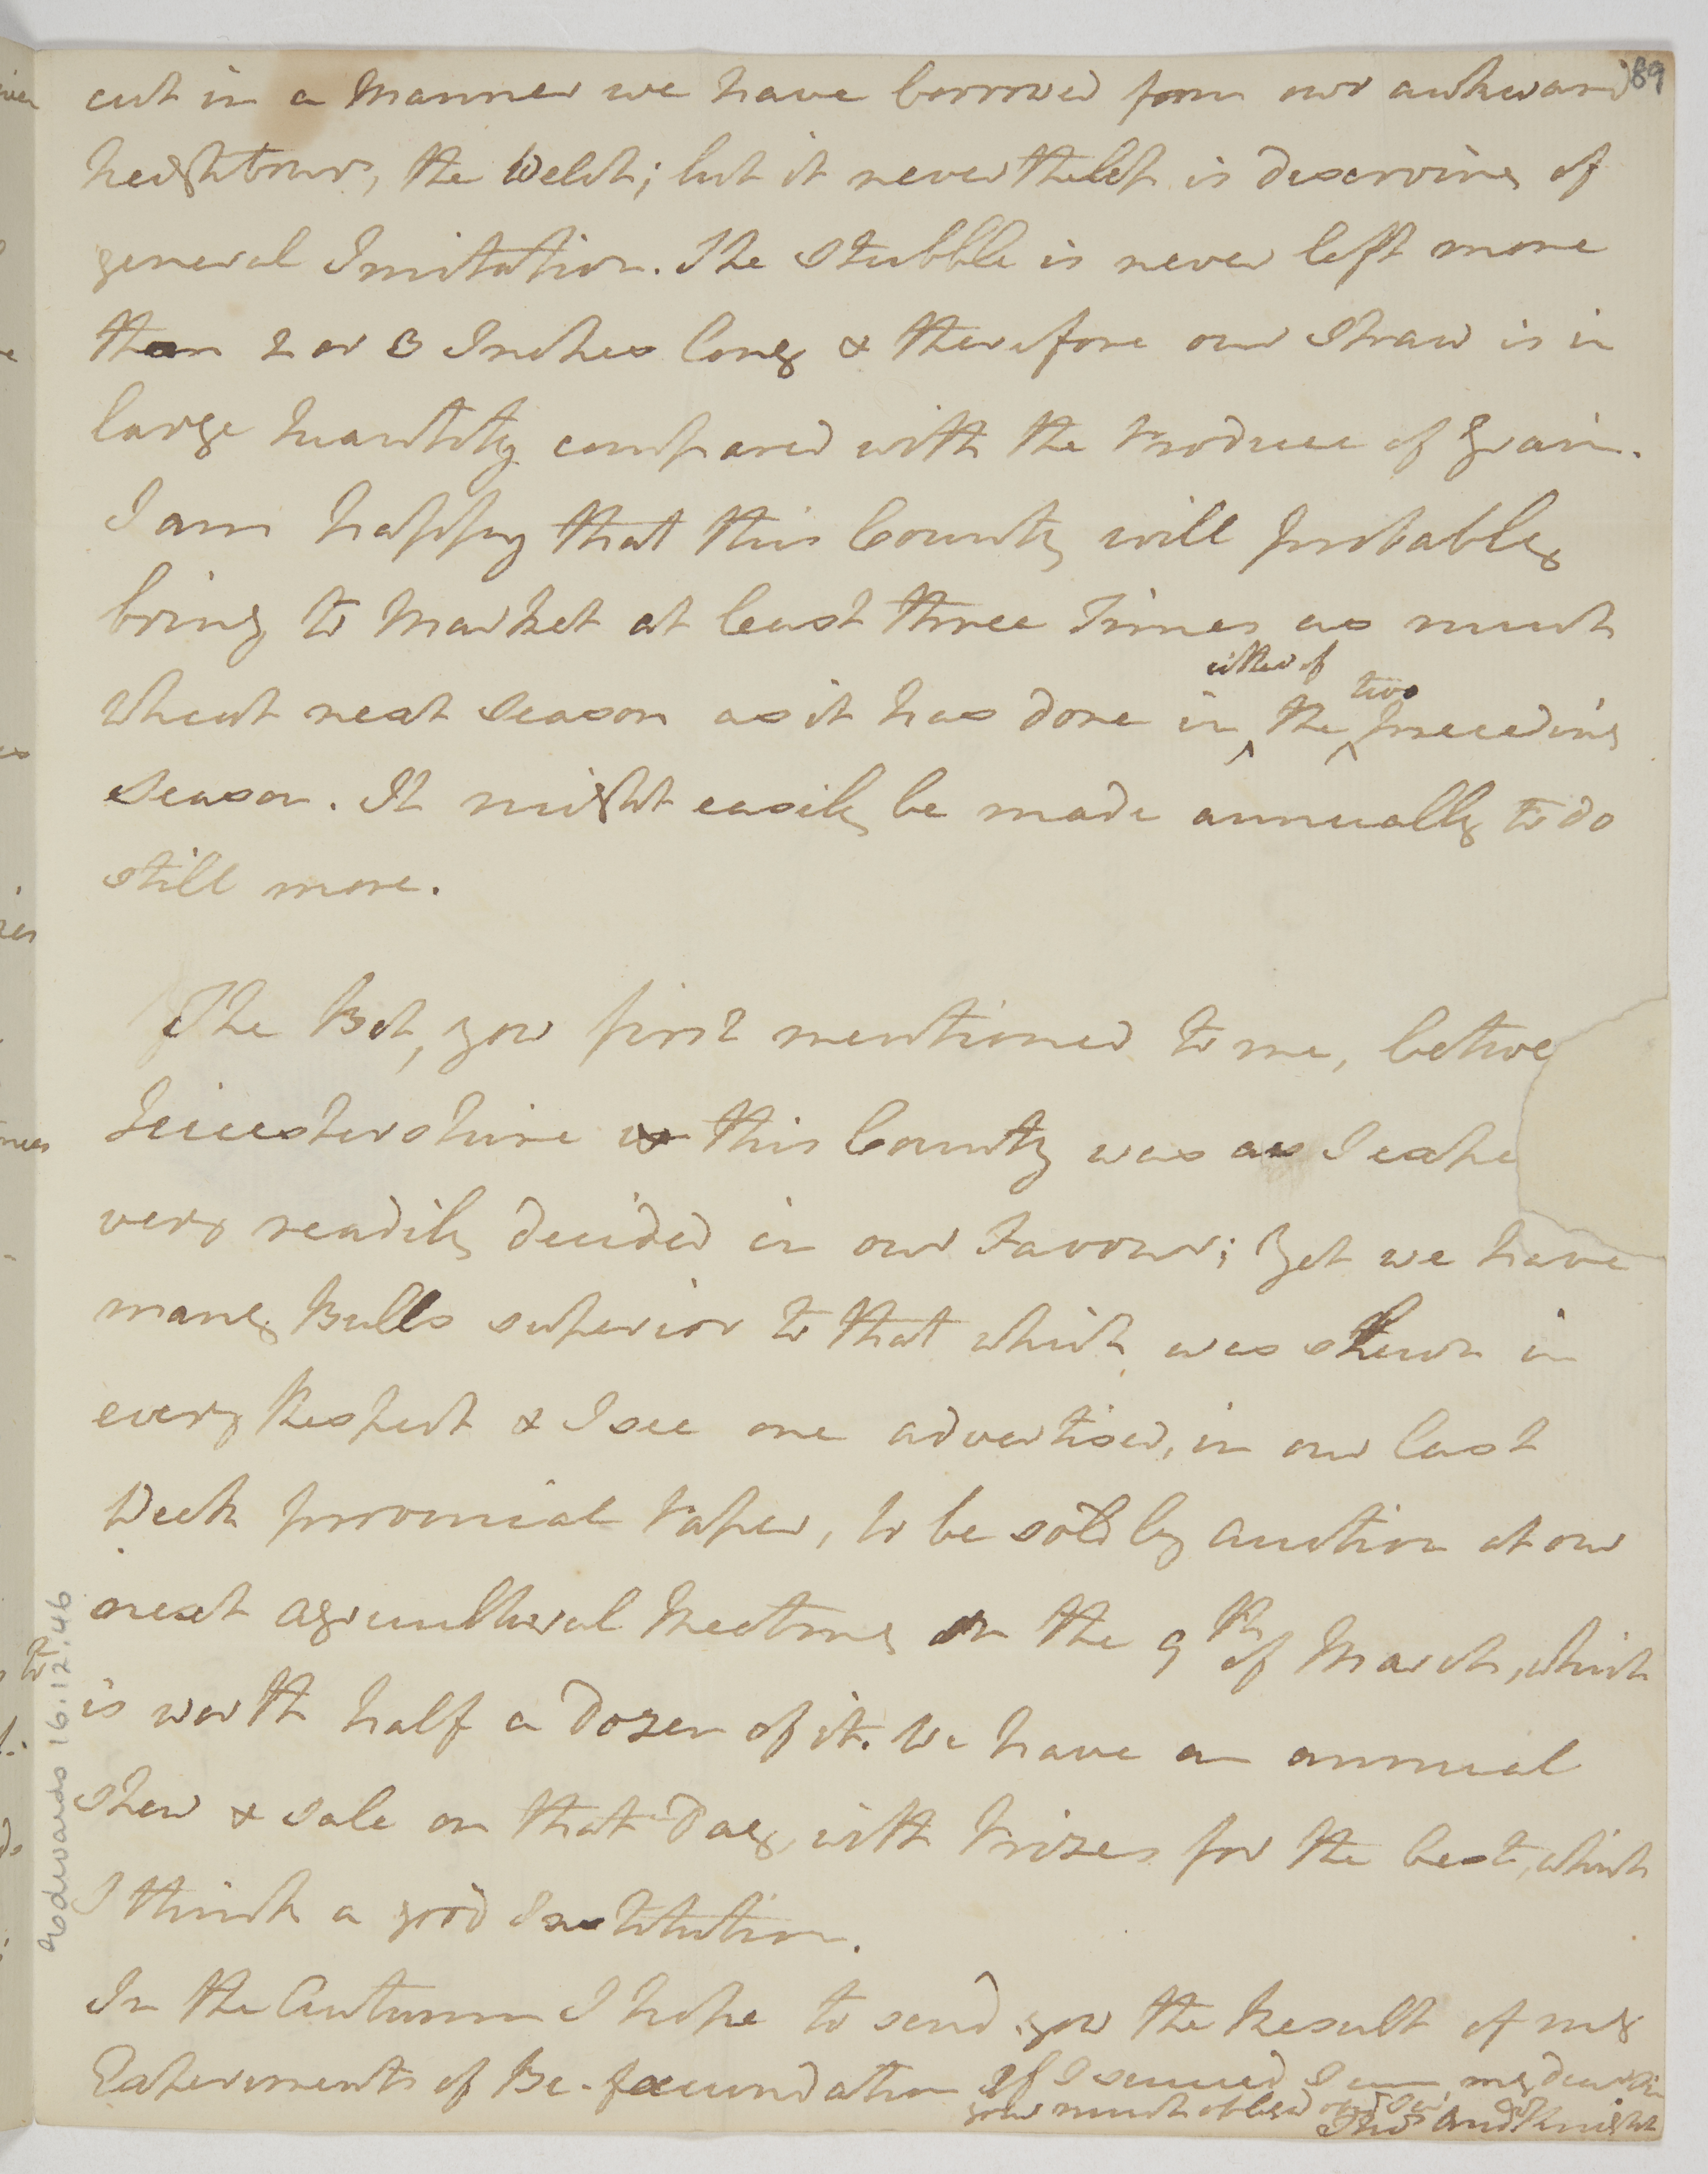 89
cut in a Manner we have borrowed from our awkward
neighbours, the Welch; but it nevertheless is deserving of
general Imitation. The Stubble is never left more
than 2 or 3 Inches long & therefore our Straw is in
large Quantity compared with the Produce of Grain.
I am happy that this County will probably
bring to Market at least three Times as much
either of two
Wheat next Season as it has done in the preceding
Season. It might easily be made annually to do
still more.
The Bet, you first mentioned to me, betwe
Leicestershire & this County was as I expe
very readily decided in our Favour; yet we have
many Bulls superior to that which was shewn in
every Respect & I see one advertised, in our last
Week provincial Paper, to be sold by Auction at our
next agricultural Meeting on the 9th of March, which
is worth half a Dozen of it. We have an annual
Shew & Sale on that Day, with Prizes for the best, which
I think a good Institution.
In the Autumn I hope to send you the Result of my
Experiments of Be-fæcundation If I succeed I am, my dear Sir
your much obliged
Thos Andw Knight
Edwards 16.12.46